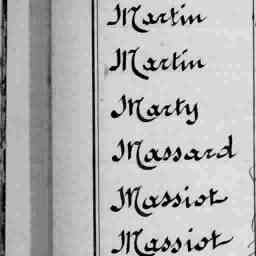 Martin
Martin
Marty
Massard
Massiot
Massiot